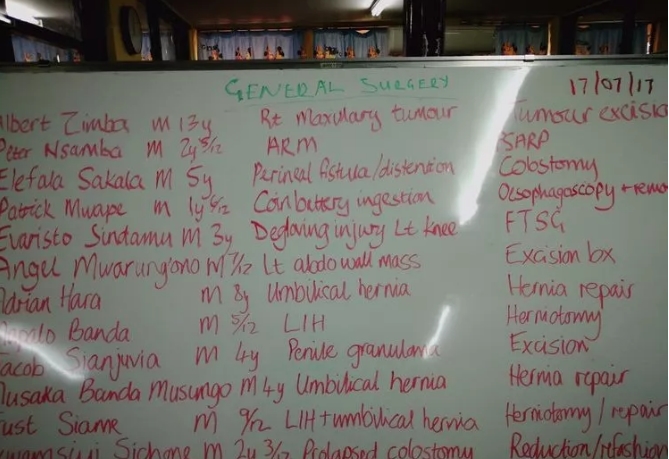 GENERAL SURGERY 17/07/17
Albert Zimba M 13y Rt Maxulary tumour Tumour excisio
Peter Nsamba M 2y 5/12 ARM SARP
Elefala Sakala M 5y Perineal fistula/distention Colostomy
Patrick Mwape M 1y 6/12 Coin battery ingestion Oesophagoscopy + remo
Evaristo Sindamu M 3y Degloving injury Lt knee FTSG
Angel Mwarung'ono M 7/12 Lt abdo wall mass Excision bx
Adrian Hara M 8y Umbilical hernia Hernia repair
Banda M 5/12 LIH Herniotomy
Jacob Sianjuvia M 4y Penile granuloma Excision
Musaka Banda Musungo M 4y Umbilical hernia Hernia repair
Just Siame M 9/12 LIH + umbilical hernia Herniotomy/repair
Sichone M 2y 3/12 Prolapsed colostomy Reduction/refashion